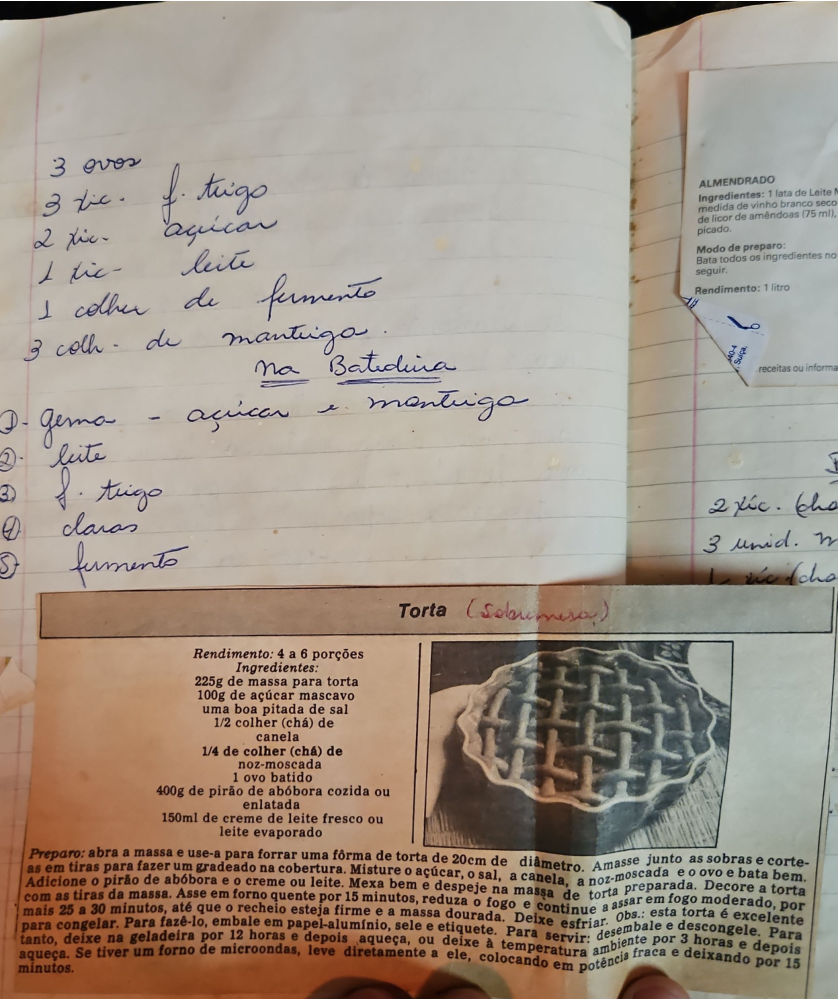 3 ovos
3 xic. f. trigo
2 xic. açúcar
1 xic. leite
1 colher de fermento
3 colh. de manteiga.
na Batedeira
1- gema - açúcar e manteiga
2- leite
3) f. trigo
4) claras
5) fermento
Torta (Sobremesa)
Rendimento: 4 a 6 porções
Ingredientes:
225g de massa para torta
100g de açúcar mascavo
uma boa pitada de sal
1/2 colher (chá) de
canela
1/4 de colher (chá) de
noz-moscada
1 ovo batido
400g de pirão de abóbora cozida ou
enlatada
150ml de creme de leite fresco ou
leite evaporado
Preparo: abra a massa e use-a para forrar uma fôrma de torta de 20cm de diâmetro. Amasse junto as sobras e corte-
as em tiras para fazer um gradeado na cobertura. Misture o açúcar, o sal, a canela, a noz-moscada e o ovo e bata bem.
Adicione o pirão de abóbora e o creme ou leite. Mexa bem e despeje na massa de torta preparada. Decore a torta
com as tiras da massa. Asse em forno quente por 15 minutos, reduza o fogo e continue a assar em fogo moderado, por
mais 25 a 30 minutos, até que o recheio esteja firme e a massa dourada. Deixe esfriar. Obs.: esta torta é excelente
para congelar. Para fazê-lo, embale em papel-alumínio, sele e etiquete. Para servir: desembale e descongele. Para
tanto, deixe na geladeira por 12 horas e depois aqueça, ou deixe à temperatura ambiente por 3 horas e depois
aqueça. Se tiver um forno de microondas, leve diretamente a ele, colocando em potência fraca e deixando por 15
minutos.
ALMENDRADO
Ingredientes: 1 lata de Leite
medida de vinho branco seco
de licor de amêndoas (75 ml),
picado.
Modo de preparo:
Bata todos os ingredientes no
seguir.
Rendimento: 1 litro
receitas ou informa
2 xíc. (cha
3 unid.
1 xíc (cha